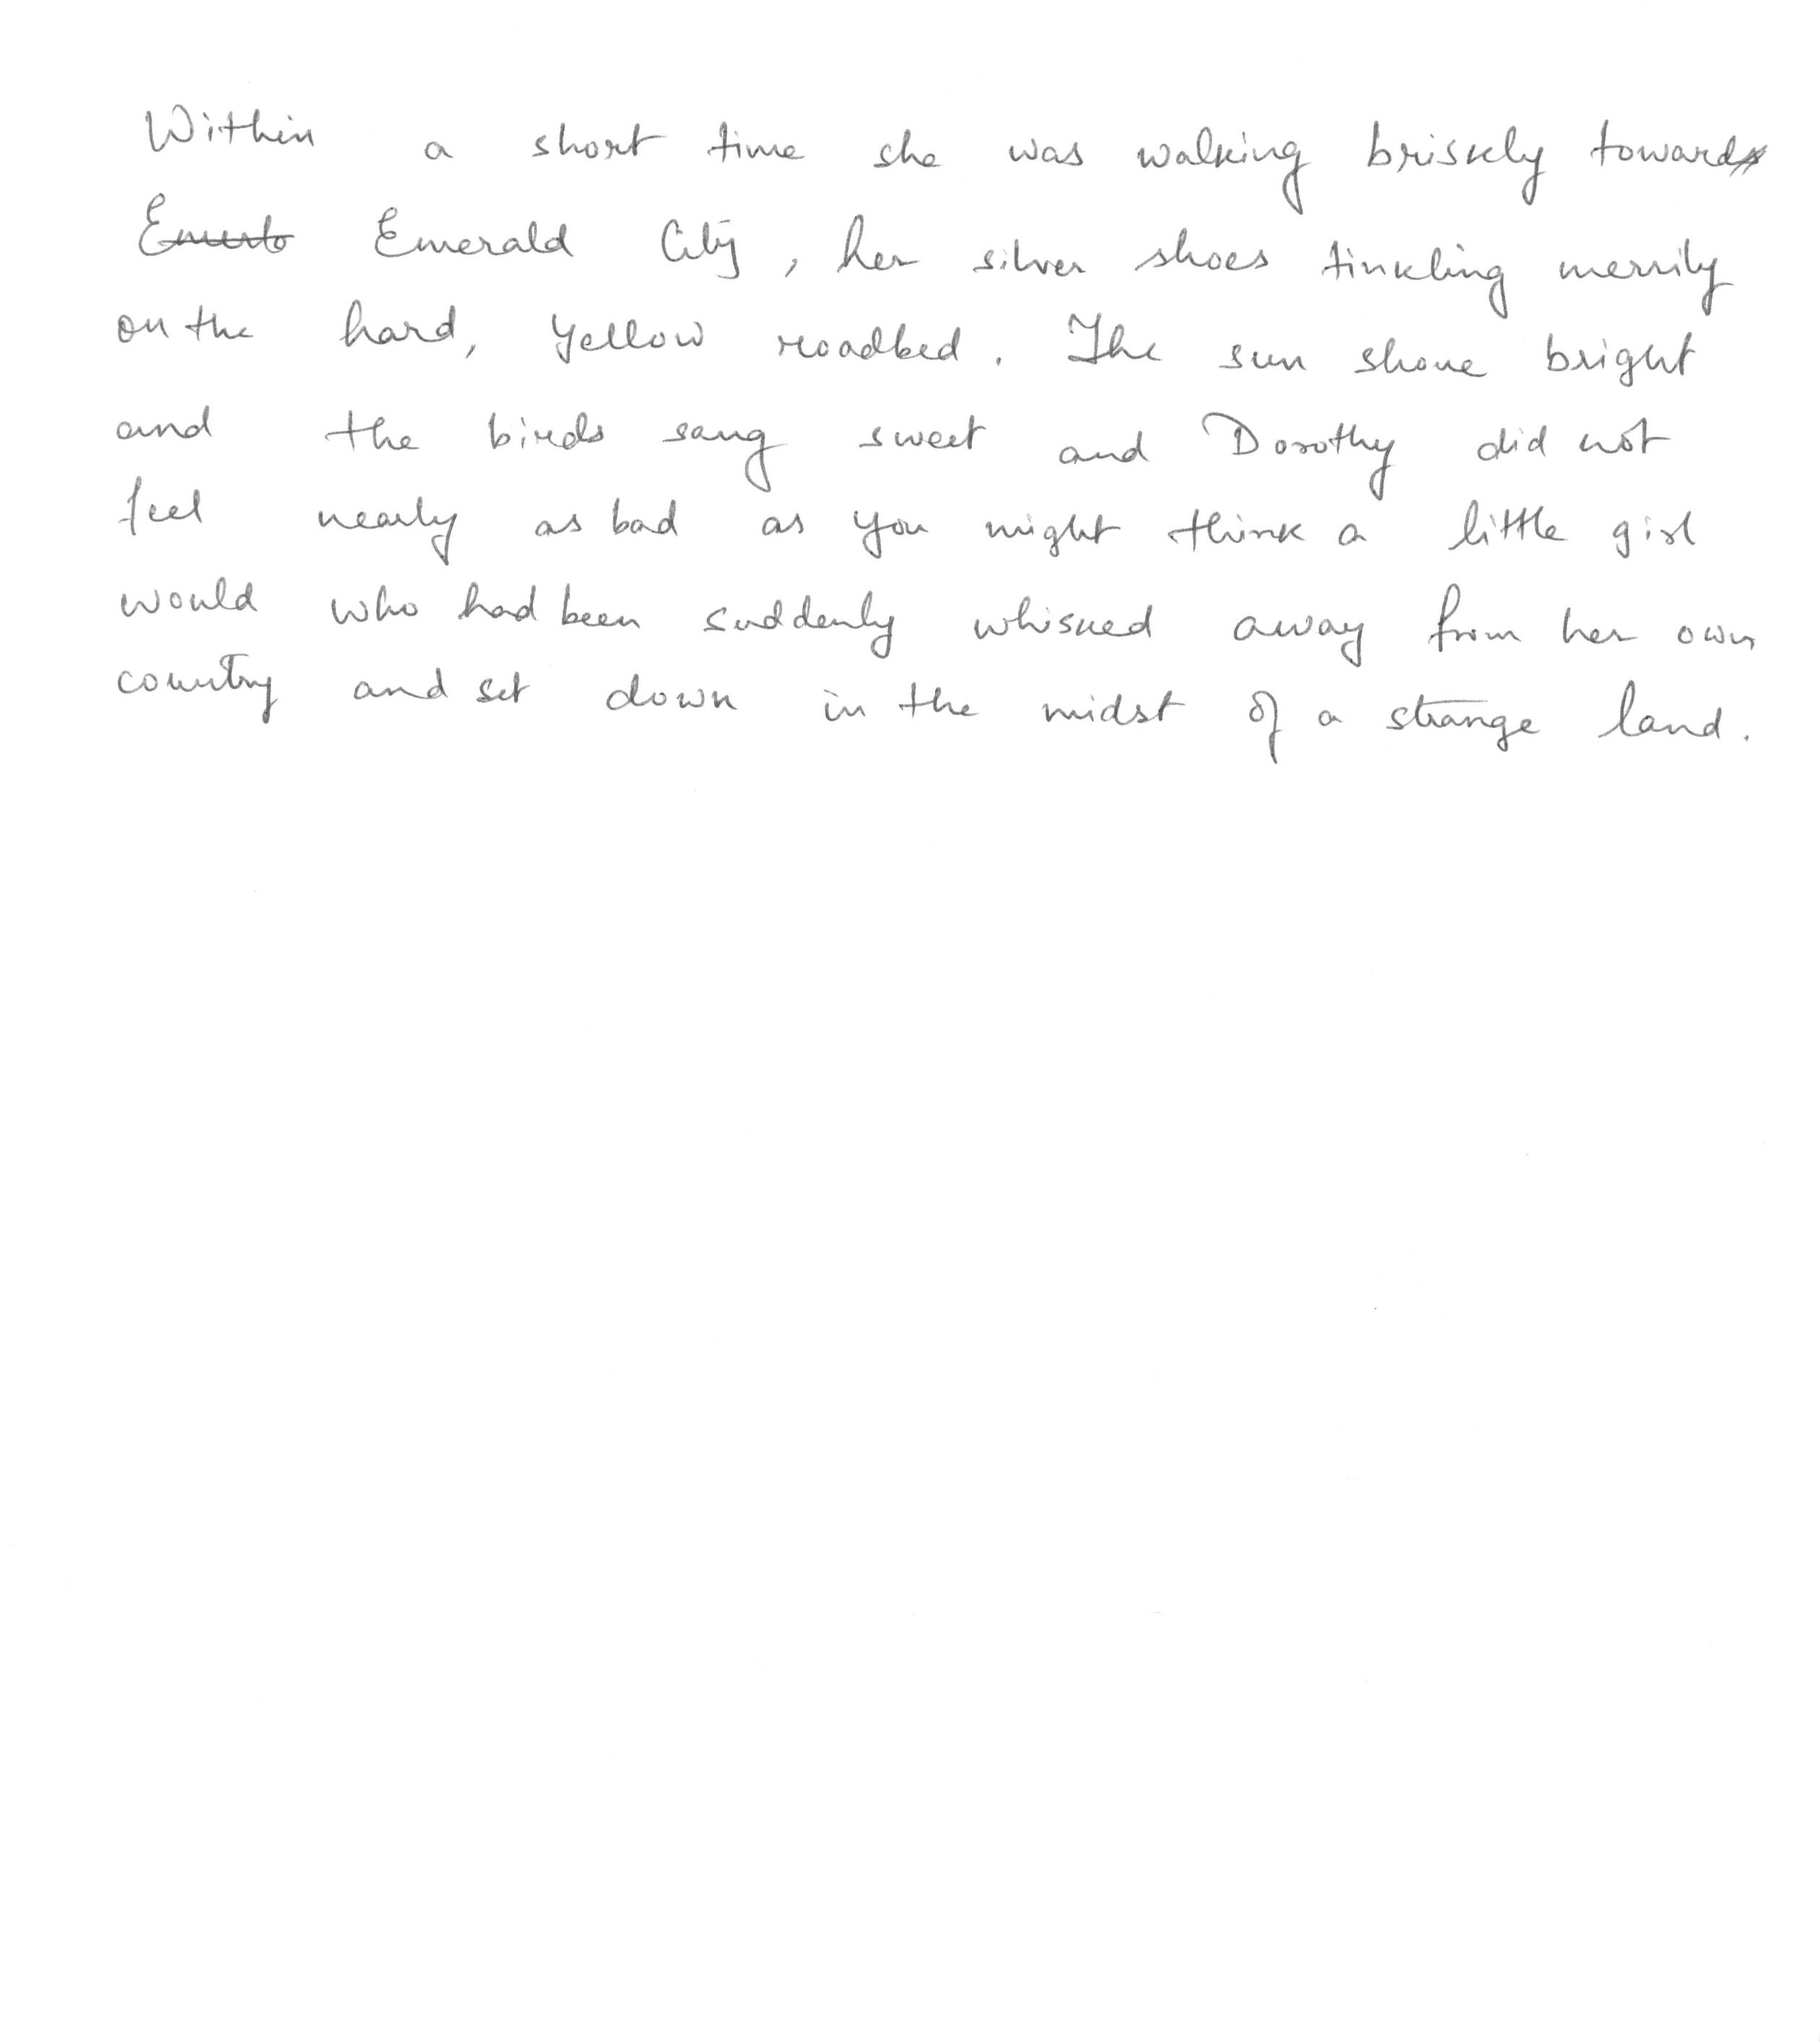 Within a short time she was walking briskly toward
Emerald City, her silver shoes tinkling merrily
on the hard, yellow roadbed. The sun shone bright
and the birds sang sweet and Dorothy did not
feel nearly as bad as you might think a little girl
would who had been suddenly whisked away from her own
country and set down in the midst of a strange land.